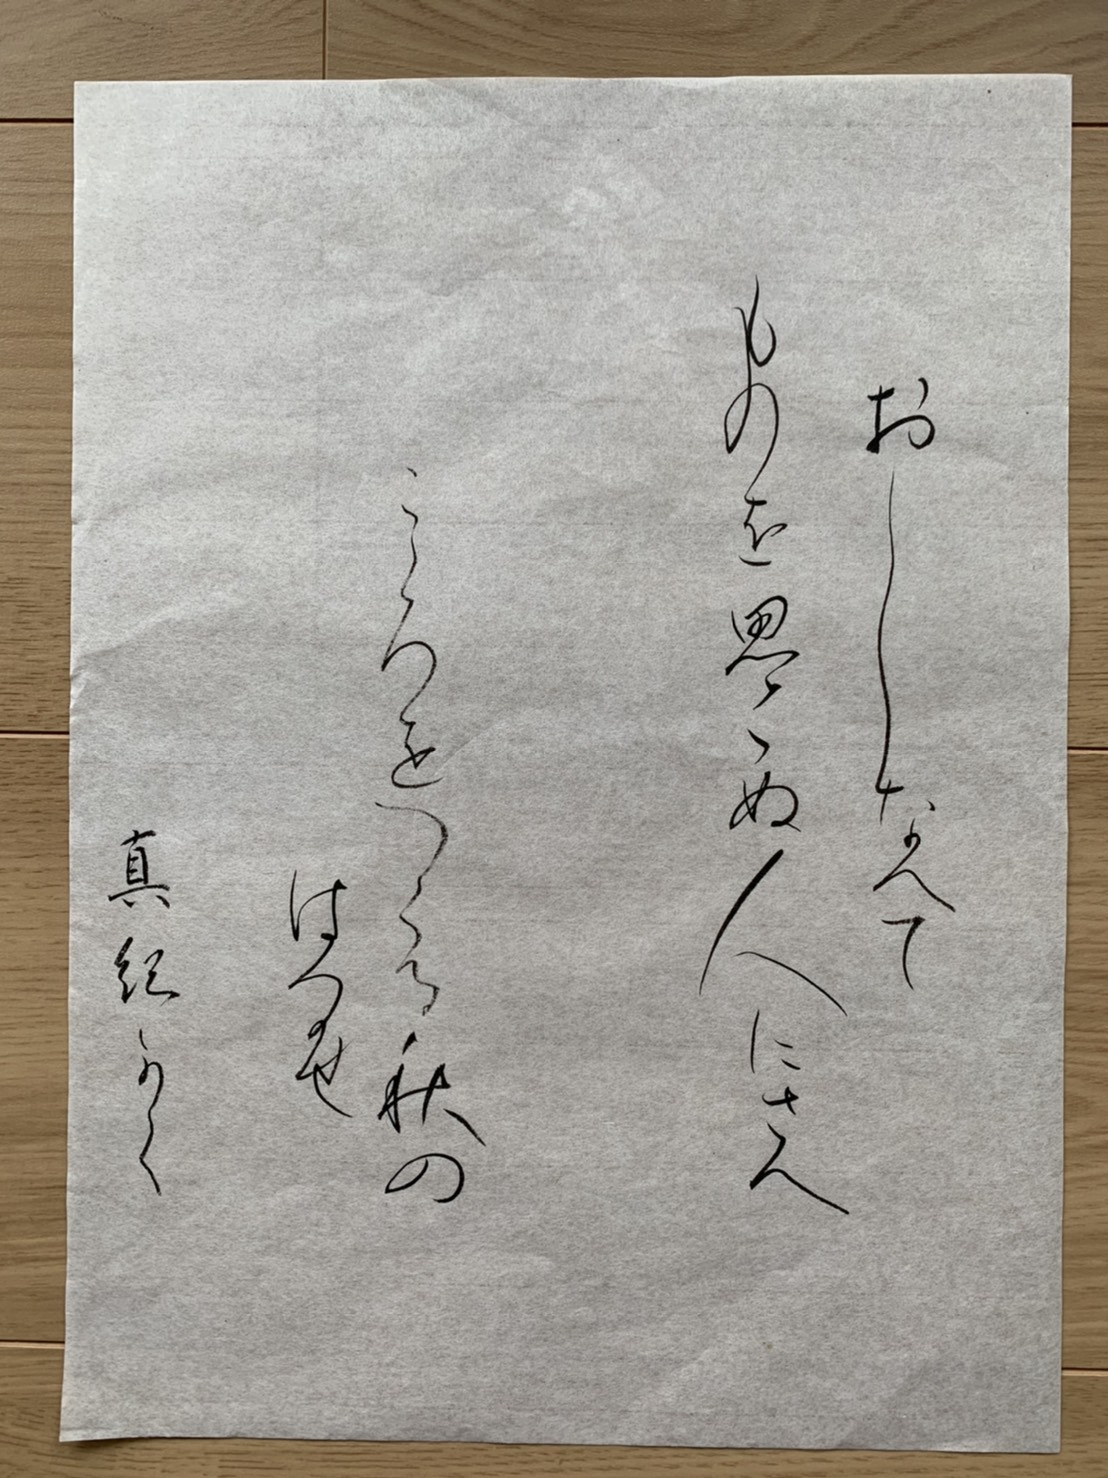 おしなへて
ものを思はぬ人にさへ
こゝろをつくる秋の
はつかせ
真紀かく